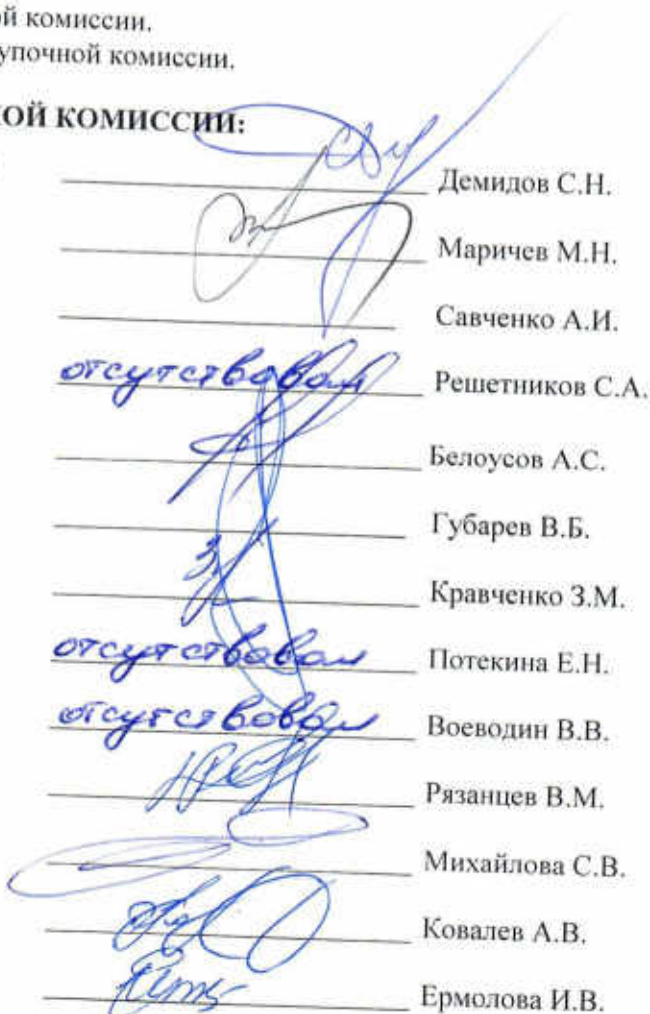 й комиссии.
упочной комиссии.
НОЙ КОМИССИИ:
Демидов С.Н.
Маричев М.Н.
Савченко А.И.
отсутствовал Решетников С.А.
Белоусов А.С.
Губарев В.Б.
Кравченко З.М.
отсутствовал Потекина Е.Н.
отсутствовал Воеводин В.В.
Рязанцев В.М.
Михайлова С.В.
Ковалев А.В.
Ермолова И.В.